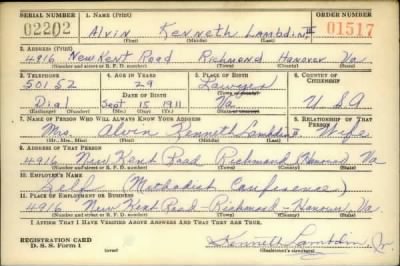 SERIAL NUMBER 1. NAME (Print) ORDER NUMBER
02202 Alvin Kenneth Lambdin 01517
(First) (Middle) (Last)
2. ADDRESS (Print)
4916 New Kent Road Richmond Hanover Va.
(Number and street or R. F. D. number) (Town) (County) (State)
3. TELEPHONE 4. AGE IN YEARS 5. PLACE OF BIRTH 6. COUNTRY OF CITIZENSHIP
50152 29
DATE OF BIRTH
Dial Sept 15 1911 Va. U S A
(Exchange) (Number) (Mo.) (Day) (Yr.) (State or country)
7. NAME OF PERSON WHO WILL ALWAYS KNOW YOUR ADDRESS 8. RELATIONSHIP OF THAT PERSON
Mrs. Alvin Kenneth Lambdin Wife
(Mr., Mrs., Miss) (First) (Middle) (Last)
9. ADDRESS OF THAT PERSON
4916 New Kent Road Richmond (Hanover) Va
(Number and street or R. F. D. number) (Town) (County) (State)
10. EMPLOYER'S NAME
Self (Methodist Conference)
11. PLACE OF EMPLOYMENT OR BUSINESS
4916 New Kent Road - Richmond - Hanover, Va.
(Number and street or R. F. D. number) (Town) (County) (State)
I AFFIRM THAT I HAVE VERIFIED ABOVE ANSWERS AND THAT THEY ARE TRUE.
REGISTRATION CARD
D. S. S. Form 1 Kenneth Lambdin, Jr.
(Registrant's signature)